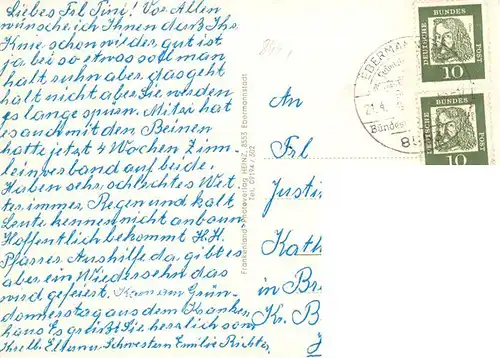 Liebes Frl Tini! Vor Allen
wünsche ich Ihnen daß Ihr
Knie schon wider gut ist
ja bei so etwas soll man
halt ruhn aber das geht
halt nicht aber Sie werden
es lange spüren. Mitzi hat
es auch mit den Beinen
hatte jetzt 4 Wochen Zink-
leimverband auf beide.
Haben sehr schlechtes Wet-
ter immer Regen und kalt
Leute kennen nicht anbaun
Hoffentlich bekommt H.H.
Pfarrer Aushilfe da, gibt es
aber ein Wiedersehn das
wird gefeiert. Kam am Grün-
donnerstag aus dem Kranken
haus Es grüßt Sie herzlich
Ihre Schwestern Emilie Richter
Frankenland-Photoverlag HEINZ, 8553 Ebermannstadt
Tel. 09194/802
An
Frl
Justi
Kath
in Br
K. B
DEUTSCHE BUNDES POST
10
DEUTSCHE BUNDES POST
10
EBERMA
21.4.